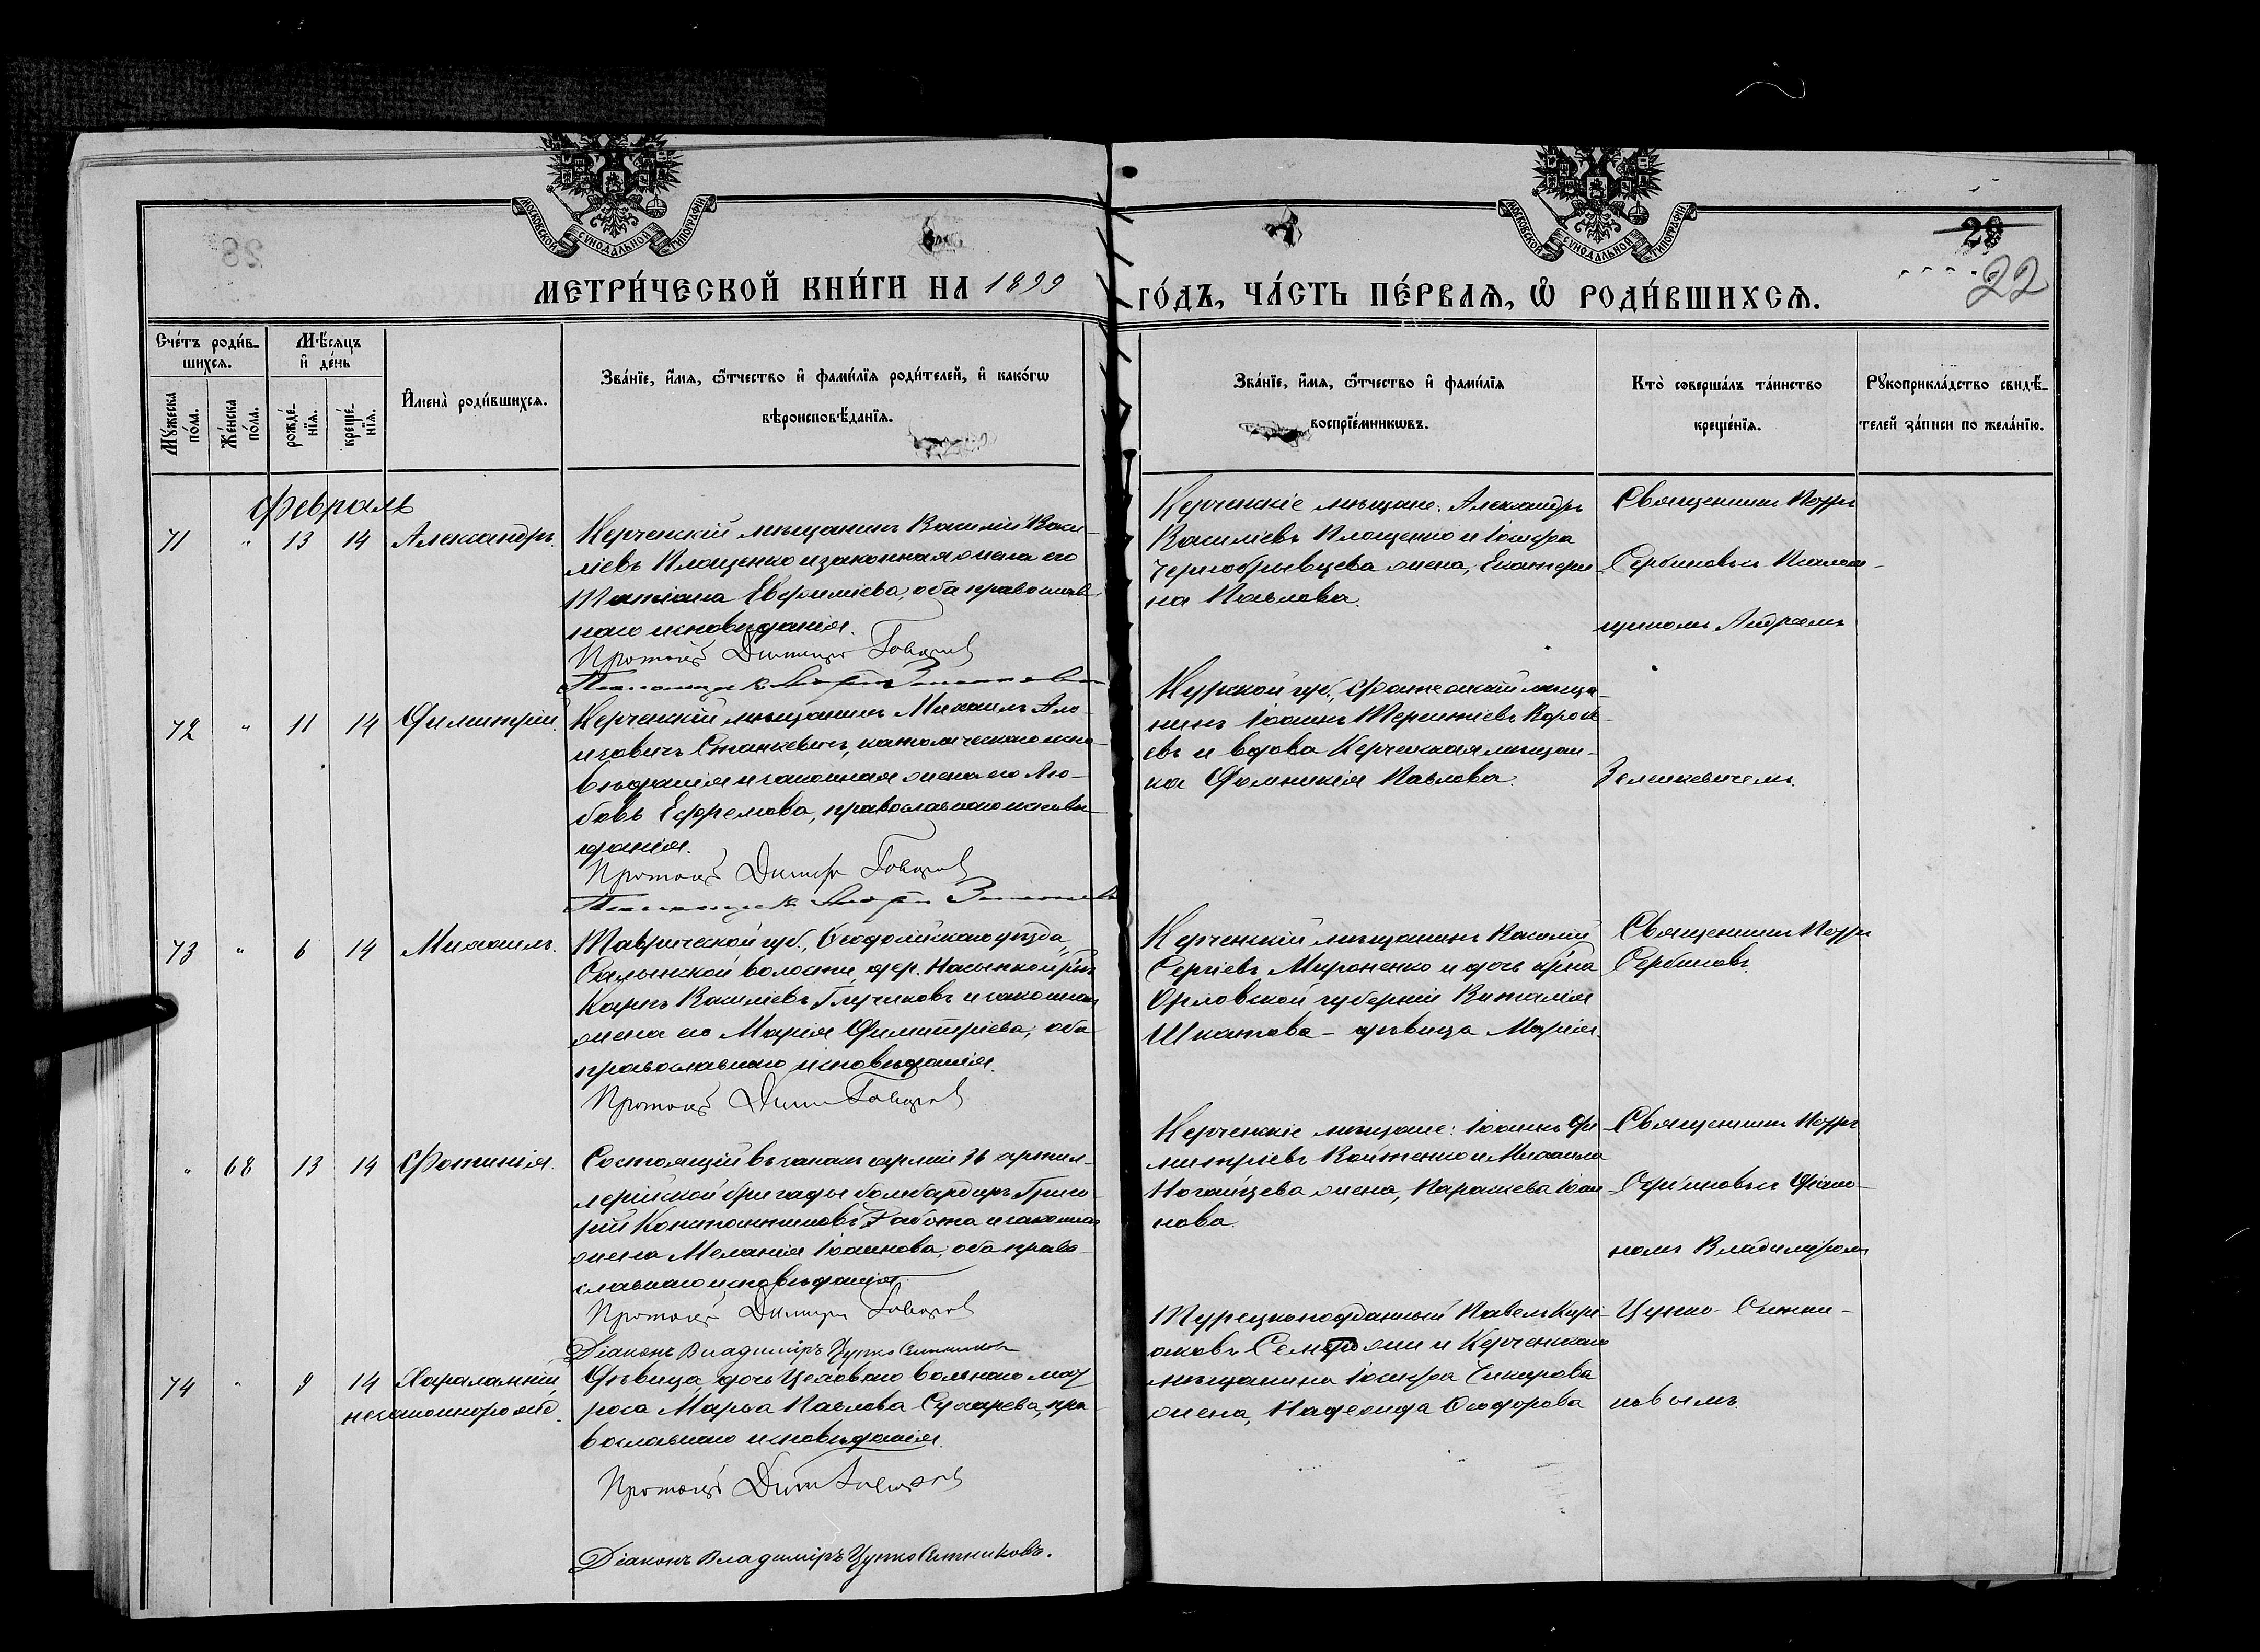 МОСКОВСКОЙ СѴНОДАЛЬНОЙ ТИПОГРАФІИ
МОСКОВСКОЙ СѴНОДАЛЬНОЙ ТИПОГРАФІИ
28
28
22
МЕТРИ́ЧЕСКОЙ КНИ́ГИ НА 1899
ГО́ДЪ, ЧА́СТЬ ПЕ́РВАѦ, Ѽ РОДИ́ВШИХСѦ.
Сче́тъ роди́в-
шихсѧ.
Мѣ́сѧцъ
и҆ де́нь
Мꙋ́жеска по́ла.
Же́нска по́ла.
рожде́-
нїѧ.
креще́-
нїѧ.
И҆мена̀ роди́вшихсѧ.
Зва́нїе, и҆́мѧ, ѻ҆́тчество и҆ фами́лїѧ роди́телей, и҆ како́гѡ
вѣроисповѣ́данїѧ.
Зва́нїе, и҆́мѧ, ѻ҆́тчество и҆ фами́лїѧ
воспрїе́мникѡвъ.
Кто̀ соверша́лъ та́инство
креще́нїѧ.
Рꙋкоприкла́дство свидѣ́-
телей за́писи по жела́нїю.
Февраль
71 " 13 14 Александръ.
Керченскій мѣщанинъ Василій Васи-
ліевъ Площенко и законная жена его
Татіана Евфиміева, оба православ-
наго исповѣданія.
Протоіер Димитрій Говоровъ
Псаломщикъ
Керченскіе мѣщане: Александръ
Василіевъ Площенко и Іосифа
Чернобрывцева жена, Екатери-
на Павлова.
Священникъ Петръ
Сербиновъ съ Псалом-
щикомъ Андреемъ
Зенькевичемъ.
72 " 11 14 Димитрій.
Керченскій мѣщанинъ Михаилъ Ало-
изовичъ Станкевичъ, католическаго испо-
вѣданія и законная жена его Лю-
бовь Ефремова, православнаго исповѣ-
данія.
Протоіер Димитр Говоровъ
Псаломщикъ
Курской губ., Фатежскій мѣща-
нинъ Іоаннъ Терентіевъ
евъ и вдова Керченская мѣщан-
ка Домникія Павлова.
73 " 6 14 Михаилъ.
Таврической губ., Ѳеодосійскаго уѣзда,
волости, дер. Насыпкой
Карпъ Василіевъ Глучковъ и законная
жена его Марія Димитріева; оба
православнаго исповѣданія.
Протоіер Дим Говоровъ
Керченскій мѣщанинъ Василій
Сергіевъ Мироненко и дочь кр-на
Орловской губерніи Виталія
Шкатова - дѣвица Марія.
Священникъ Петръ
Сербиновъ.
" 68 13 14 Фотинія.
Состоящій въ запасѣ арміи 36 артил-
лерійской бригады бомбардиръ Григо-
рій Константиновъ и законная
жена Меланія Іоаннова; оба право-
славнаго исповѣданія.
Протоіер Димитрій Говоровъ
Діаконъ Владиміръ Цупко Ситниковъ
Керченскіе мѣщане: Іоаннъ Ди-
митріевъ Войтенко и Михаила
Ногайцева жена, Параскева Іоан-
нова.
Священникъ Петръ
Сербиновъ съ Діако-
номъ Владиміромъ
Цупко-Ситни-
ковымъ.
74 " 9 14 Харалампій
незаконнорожд.
Дѣвица, дочь Цеховаго вольнаго мат-
роса Марѳа Павлова Сухарева, пра-
вославнаго исповѣданія.
Протоіер Дим Говоровъ
Діаконъ Владиміръ Цупко Ситниковъ.
Турецкоподданный Павелъ
и Керченскаго
мѣщанина Іосифа Чикирова
жена, Надежда Ѳеодорова